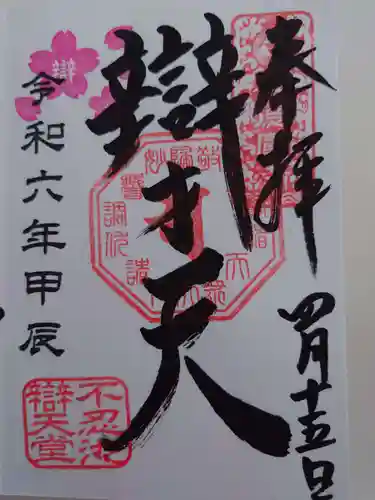 奉拝
四月十五日
辯才天
令和六年甲辰
辯
不忍池
辯天堂